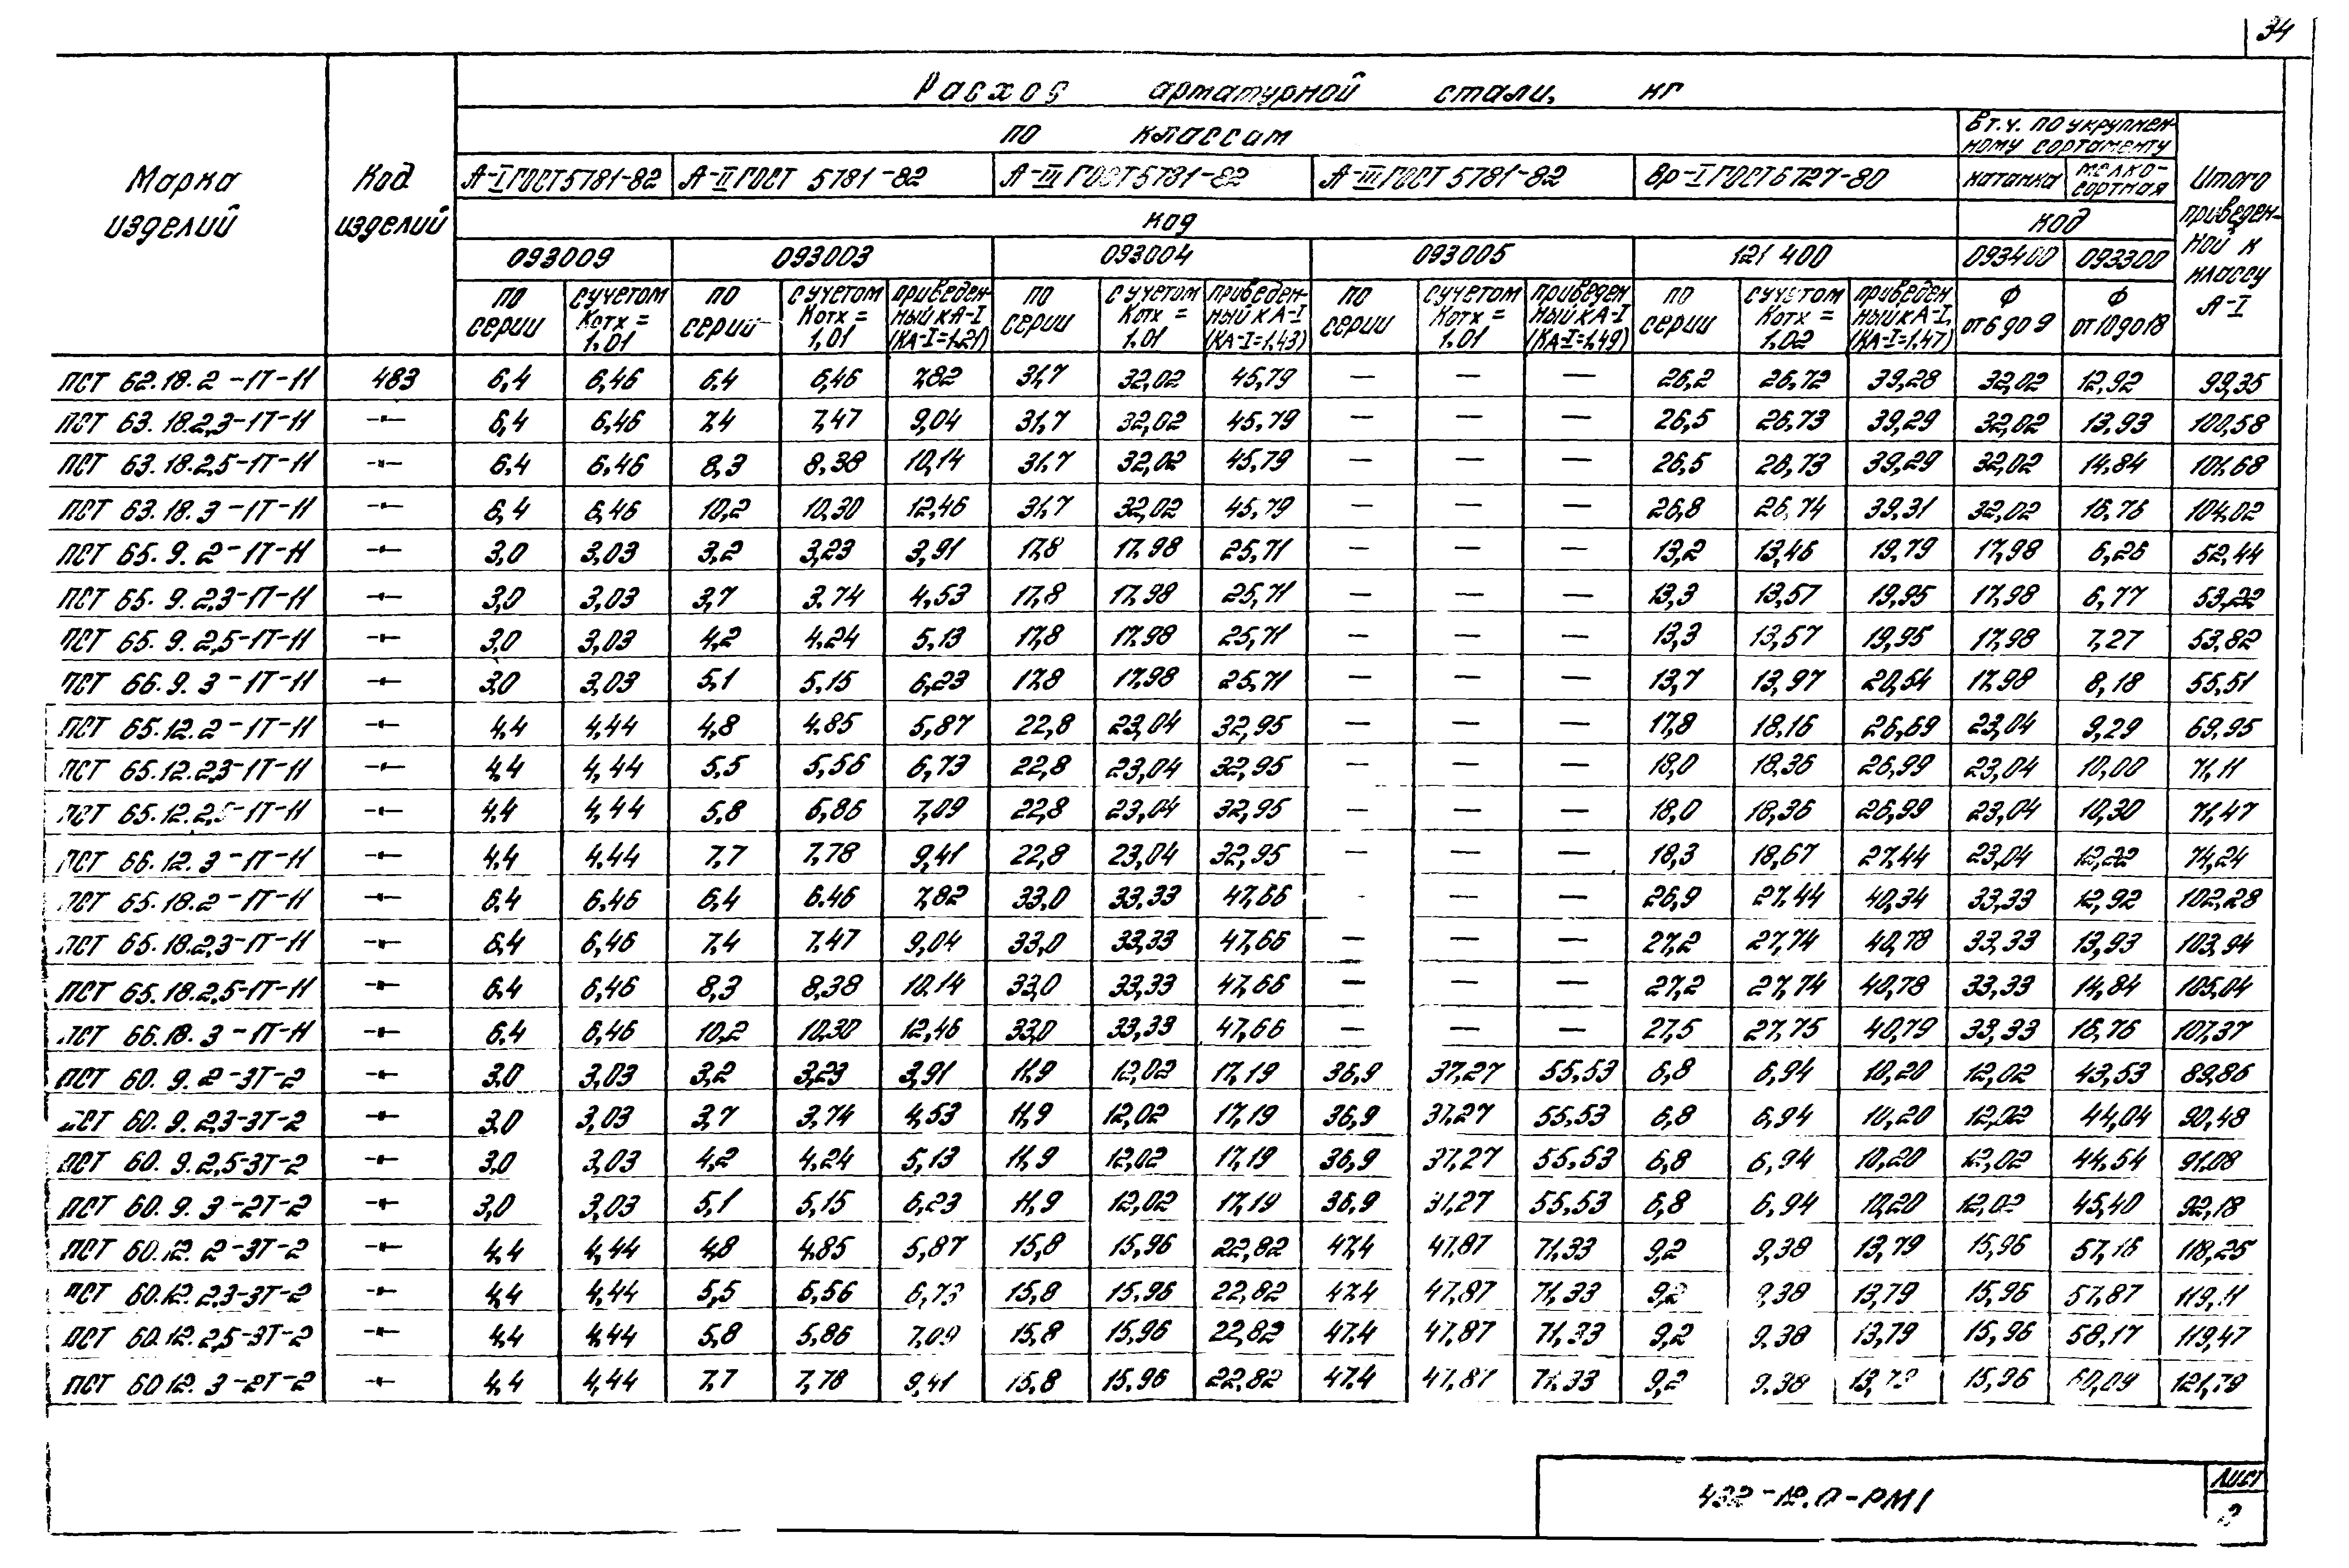 34
Расход арматурной стали, кг
по классам
В т.ч. по укрупнен-
ному сортаменту
Марка изделий
Код изделий
А-I ГОСТ 5781-82 А-II ГОСТ 5781-82 А-III ГОСТ 5781-82 А-III ГОСТ 5781-82 Вр-I ГОСТ 6727-80 катанка мелко-сортная
Итого приведен-ной к классу А-I
код код
093009 093003 093004 093005 121400 093400 093300
по серии с учетом Котх = 1,01 по серии с учетом Котх = 1,01 приведен-ный к А-I (КА-I=1,21) по серии с учетом Котх = 1,01 приведен-ный к А-I (КА-I=1,43) по серии с учетом Котх = 1,01 приведен ный к А-I (КА-I=1,49) по серии с учетом Котх = 1,02 приведен ный к А-I, (КА-I=1,47) Ф от 6 до 9 Ф от 10 до 18
ПСТ 62.18.2-1Т-11 483 6,4 6,46 6,4 6,46 7,82 31,7 32,02 45,79 — — — 26,2 26,72 39,28 32,02 12,92 99,35
ПСТ 63.18.2,3-1Т-11 -"- 6,4 6,46 7,4 7,47 9,04 31,7 32,02 45,79 — — — 26,5 26,73 39,29 32,02 13,93 100,58
ПСТ 63.18.2,5-1Т-11 -"- 6,4 6,46 8,3 8,38 10,14 31,7 32,02 45,79 — — — 26,5 26,73 39,29 32,02 14,84 101,68
ПСТ 63.18.3-1Т-11 -"- 6,4 6,46 10,2 10,30 12,46 31,7 32,02 45,79 — — — 26,8 26,74 39,31 32,02 16,76 104,02
ПСТ 65.9.2-1Т-11 -"- 3,0 3,03 3,2 3,23 3,91 17,8 17,98 25,71 — — — 13,2 13,46 19,79 17,98 6,26 52,44
ПСТ 65.9.2,3-1Т-11 -"- 3,0 3,03 3,7 3,74 4,53 17,8 17,98 25,71 — — — 13,3 13,57 19,95 17,98 6,77 53,22
ПСТ 65.9.2,5-1Т-11 -"- 3,0 3,03 4,2 4,24 5,13 17,8 17,98 25,71 — — — 13,3 13,57 19,95 17,98 7,27 53,82
ПСТ 66.9.3-1Т-11 -"- 3,0 3,03 5,1 5,15 6,23 17,8 17,98 25,71 — — — 13,7 13,97 20,54 17,98 8,18 55,51
ПСТ 65.12.2-1Т-11 -"- 4,4 4,44 4,8 4,85 5,87 22,8 23,04 32,95 — — — 17,8 18,16 26,69 23,04 9,29 69,95
ПСТ 65.12.2,3-1Т-11 -"- 4,4 4,44 5,5 5,56 6,73 22,8 23,04 32,95 — — — 18,0 18,36 26,99 23,04 10,00 71,11
ПСТ 65.12.2,5-1Т-11 -"- 4,4 4,44 5,8 5,86 7,09 22,8 23,04 32,95 — — — 18,0 18,36 26,99 23,04 10,30 71,47
ПСТ 66.12.3-1Т-11 -"- 4,4 4,44 7,7 7,78 9,41 22,8 23,04 32,95 — — — 18,3 18,67 27,44 23,04 12,22 74,24
ПСТ 65.18.2-1Т-11 -"- 6,4 6,46 6,4 6,46 7,82 33,0 33,33 47,66 — — — 26,9 27,44 40,34 33,33 12,92 102,28
ПСТ 65.18.2,3-1Т-11 -"- 6,4 6,46 7,4 7,47 9,04 33,0 33,33 47,66 — — — 27,2 27,74 40,78 33,33 13,93 103,94
ПСТ 65.18.2,5-1Т-11 -"- 6,4 6,46 8,3 8,38 10,14 33,0 33,33 47,66 — — — 27,2 27,74 40,78 33,33 14,84 105,04
ПСТ 66.18.3-1Т-11 -"- 6,4 6,46 10,2 10,30 12,46 33,0 33,33 47,66 — — — 27,5 27,75 40,79 33,33 16,76 107,37
ПСТ 60.9.2-3Т-2 -"- 3,0 3,03 3,2 3,23 3,91 11,9 12,02 17,19 36,9 37,27 55,53 6,8 6,94 10,20 12,02 43,53 89,86
ПСТ 60.9.2,3-3Т-2 -"- 3,0 3,03 3,7 3,74 4,53 11,9 12,02 17,19 36,9 37,27 55,53 6,8 6,94 10,20 12,02 44,04 90,48
ПСТ 60.9.2,5-3Т-2 -"- 3,0 3,03 4,2 4,24 5,13 11,9 12,02 17,19 36,9 37,27 55,53 6,8 6,94 10,20 12,02 44,54 91,08
ПСТ 60.9.3-2Т-2 -"- 3,0 3,03 5,1 5,15 6,23 11,9 12,02 17,19 36,9 37,27 55,53 6,8 6,94 10,20 12,02 45,40 92,18
ПСТ 60.12.2-3Т-2 -"- 4,4 4,44 4,8 4,85 5,87 15,8 15,96 22,82 47,4 47,87 71,33 9,2 9,38 13,79 15,96 57,16 118,25
ПСТ 60.12.2,3-3Т-2 -"- 4,4 4,44 5,5 5,56 6,73 15,8 15,96 22,82 47,4 47,87 71,33 9,2 9,38 13,79 15,96 57,87 119,11
ПСТ 60.12.2,5-3Т-2 -"- 4,4 4,44 5,8 5,86 7,09 15,8 15,96 22,82 47,4 47,87 71,33 9,2 9,38 13,79 15,96 58,17 119,47
ПСТ 60.12.3-2Т-2 -"- 4,4 4,44 7,7 7,78 9,41 15,8 15,96 22,82 47,4 47,87 71,33 9,2 9,38 13,79 15,96 60,09 121,79
Лист